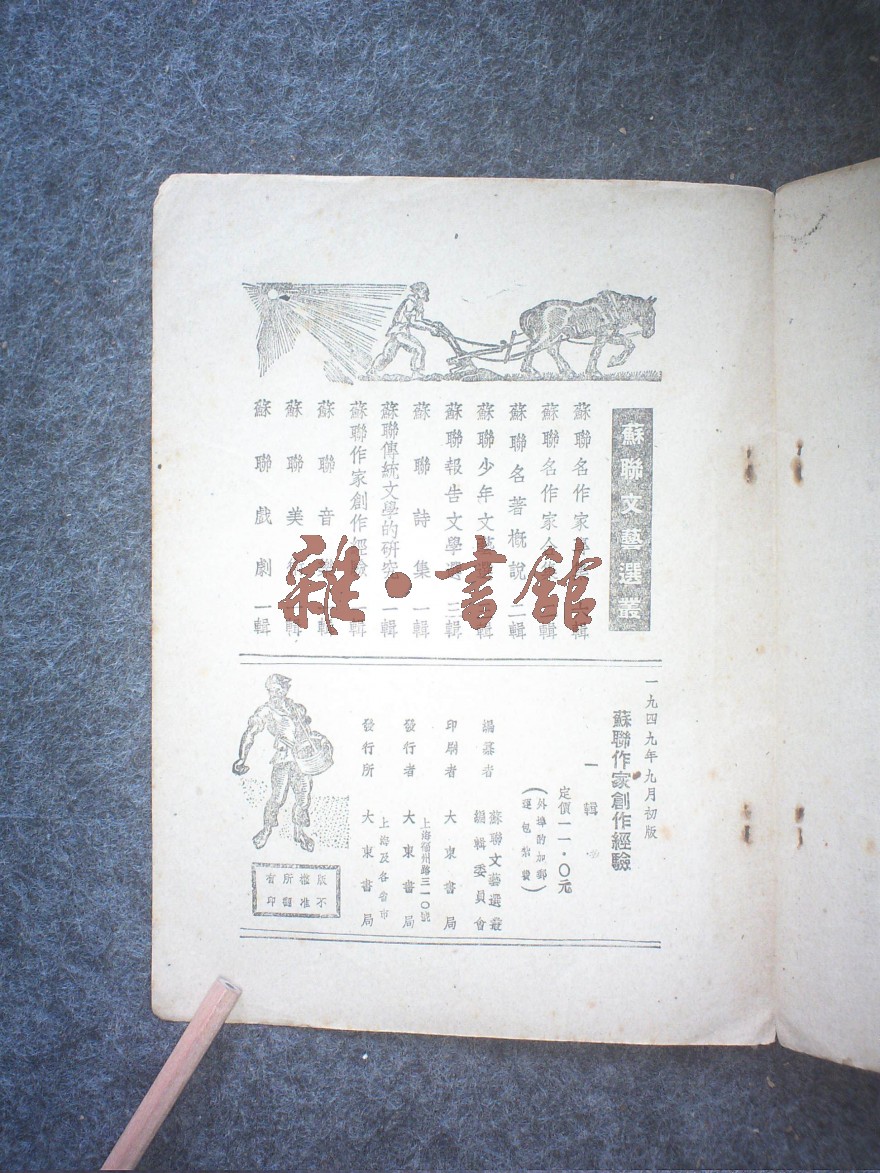 蘇聯文藝選叢
蘇聯名作家 輯
蘇聯名作家 輯
蘇聯名著概說 二輯
蘇聯少年文 輯
蘇聯報告文學選 三輯
蘇聯詩集 一輯
蘇聯傳統文學的研究 一輯
蘇聯作家創作經驗 一輯
蘇聯音 輯
蘇聯美 輯
蘇聯戲劇 一輯
雜·書館
一九四九年九月初版
蘇聯作家創作經驗
一輯
定價一一·〇元
(外埠酌加郵
運包紮費)
編纂者 蘇聯文藝選叢
編輯委員會
印刷者 大東書局
上海福州路三一〇號
發行者 大東書局
上海及各省市
發行所 大東書局
版權所有
不准翻印